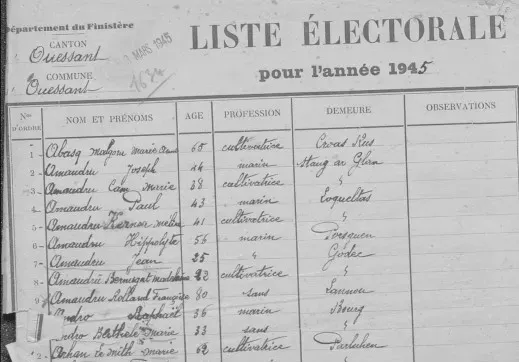 Département du Finistère
CANTON
Ouessant
COMMUNE
Ouessant
MARS 1945
1634
LISTE ÉLECTORALE
pour l'année 1945
Nos D'ORDRE NOM ET PRÉNOMS AGE PROFESSION DEMEURE OBSERVATIONS
1 Abasq Malgorn Marie 60 cultivatrice
2 Amandru Joseph 44 marin Stang ar Glan
3 Amandru Cam Marie 38 cultivatrice "
4 Amandru Paul 43 marin Loqueltas
5 Amandru 41 cultivatrice "
6 Amandru Hippolyte 56 marin
7 Amandru Jean 25 " Godec
8 Amandru Bernugat cultivatrice "
9 Amandru Rolland Françoise 80 sans Lanneu
Raphaël 36 marin Bourg
Berthelé Marie 33 sans "
Marie 62 cultivatrice Parluhen